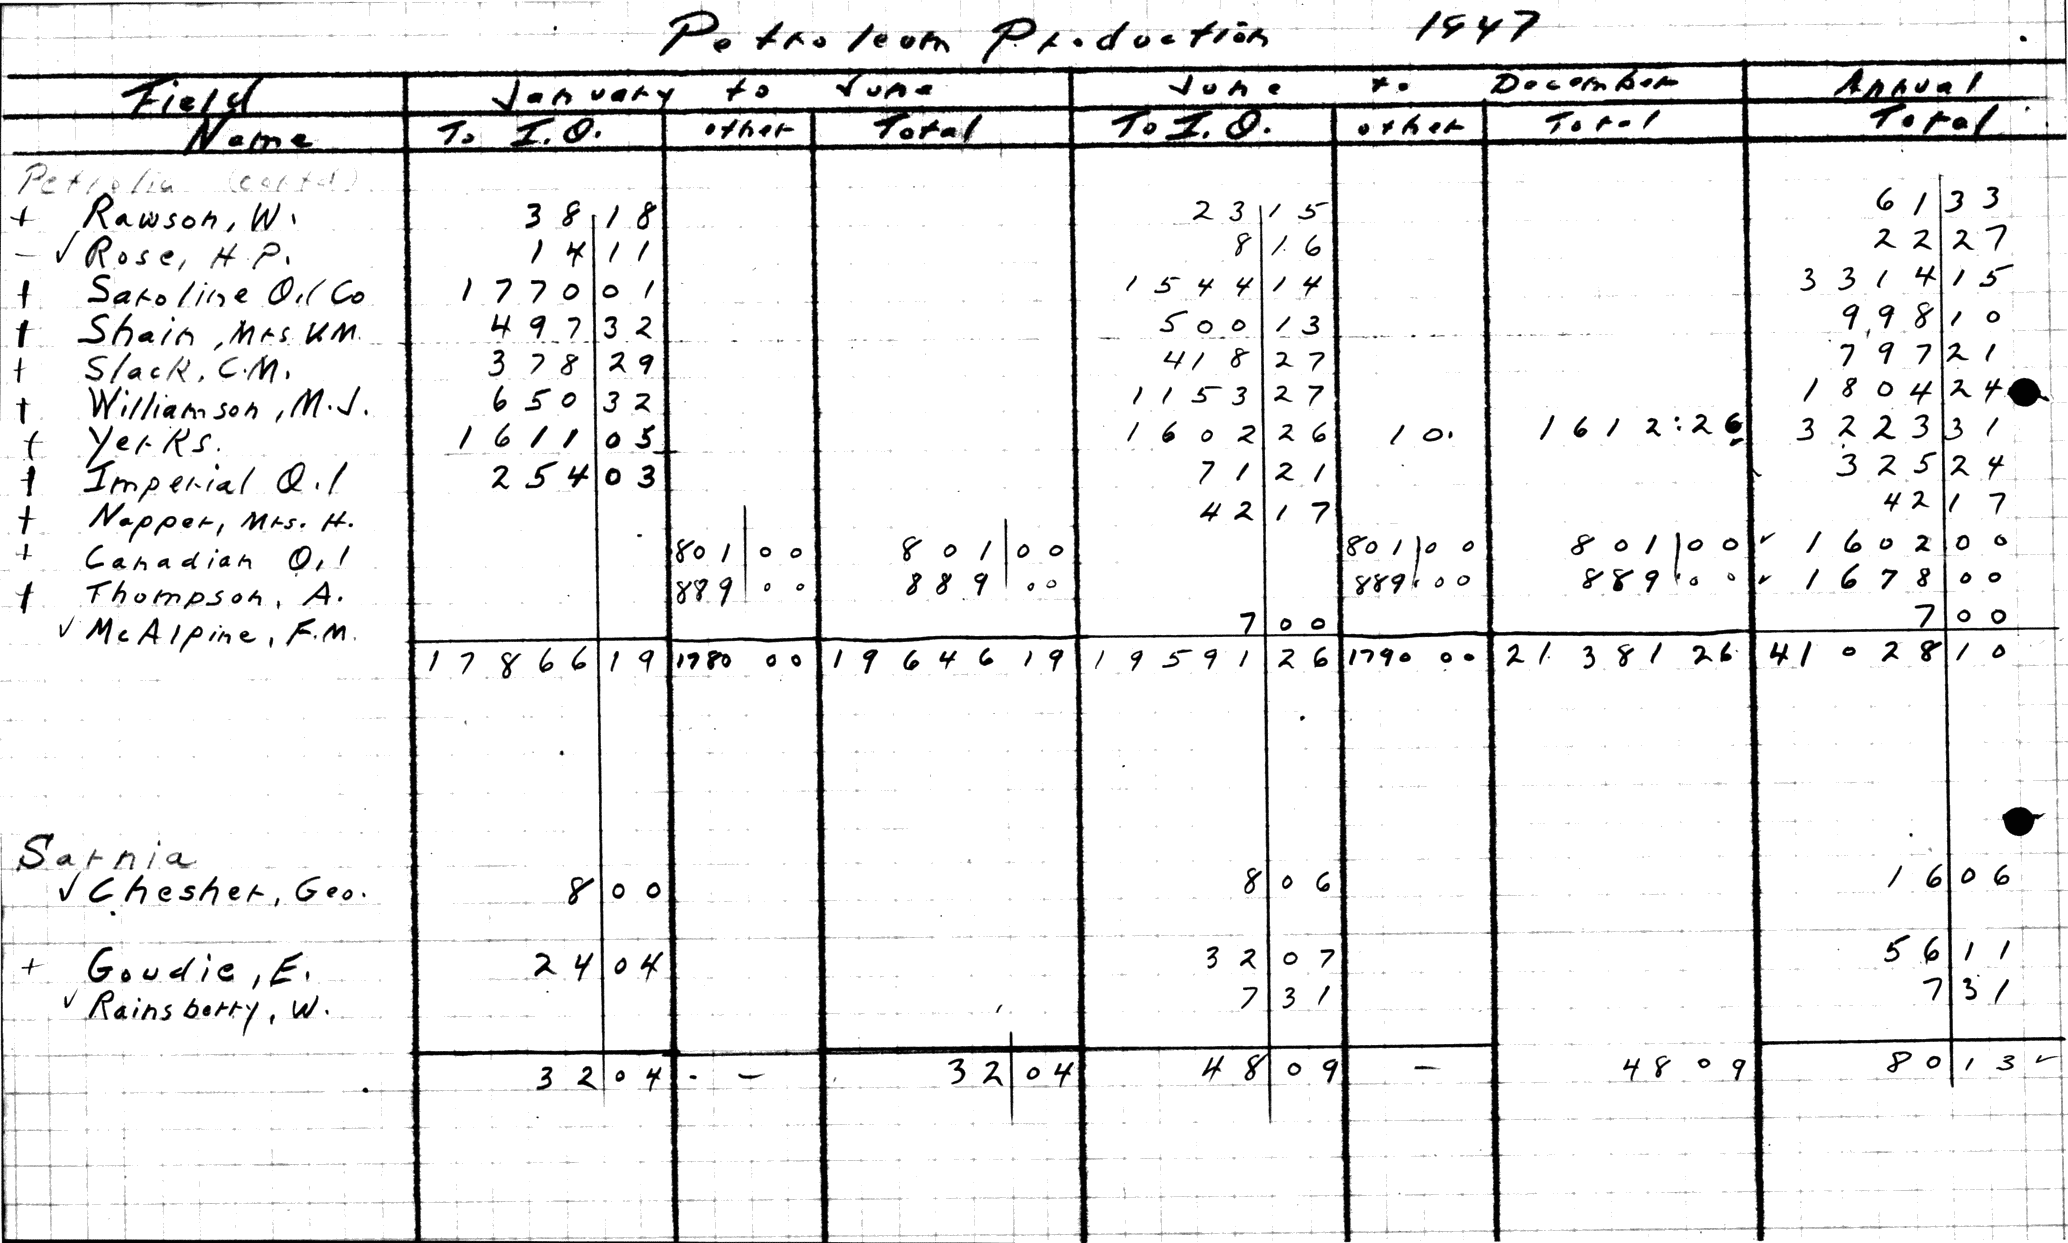 Petroleum Production 1947
Field January to June June to December Annual
Name To I.O. other Total To I.O. other Total Total
Petrolia (cont'd)
+ Rawson, W. 38 18 23 15 61 33
- ✓ Rose, H.P. 14 11 8 16 22 27
+ Saroline Oil Co 1770 01 1544 14 3314 15
+ Shain, Mrs. V.M. 497 32 500 13 998 10
+ Slack, C.M. 378 29 418 27 797 21
+ Williamson, M.J. 650 32 1153 27 1804 24
+ Yerks. 1611 05 1602 26 10. 1612:26 3223 31
+ Imperial Oil 254 03 71 21 325 24
+ Napper, Mrs. H. 42 17 42 17
+ Canadian Oil 801 00 801 00 801 00 801 00 ✓ 1602 00
+ Thompson, A. 889 00 889 00 889 00 889 00 ✓ 1678 00
✓ McAlpine, F.M. 7 00 7 00
17866 19 1780 00 19646 19 19591 26 1790 00 21381 26 41028 10
Sarnia
✓ Chesher, Geo. 8 00 8 06 16 06
+ Goudie, E. 24 04 32 07 56 11
✓ Rainsberry, W. 7 31 7 31
32 04 - 32 04 48 09 - 48 09 80 13 ✓